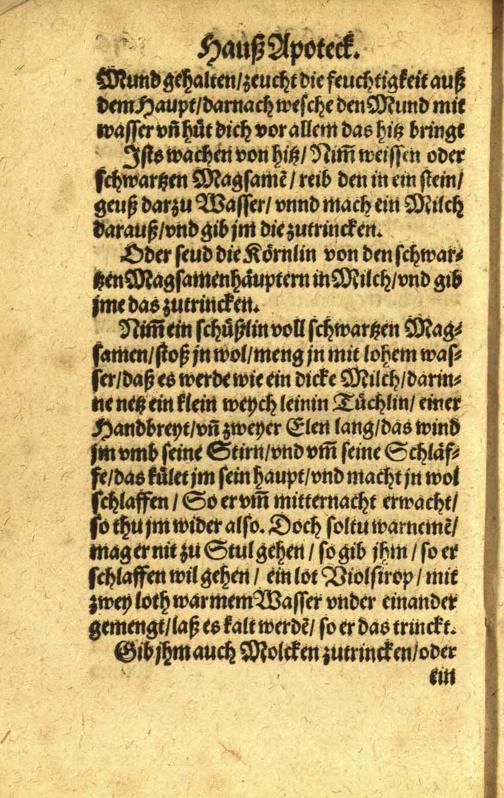 Hauß Apoteck.
Mund gehalten/zeucht die feuchtigkeit auß
dem Haupt/darnach wesche den Mund mit
wasser vn̄ hüt dich vor allem das hitz bringt
Ists wachen von hitz/Nim̄ weissen oder
schwartzen Magsamē/reib den in ein stein/
geuß darzu Wasser/vnnd mach ein Milch
darauß/vnd gib jm die zutrincken.
Oder seud die Körnlin von den schwar⸗
tzen Magsamenhäuptern in Milch/vnd gib
jme das zutrincken.
Nim̄ ein schüßlin voll schwartzen Mag⸗
samen/stoß jn wol/meng jn mit lohem was⸗
ser/daß es werde wie ein dicke Milch/darin⸗
ne netz ein klein weych leinin Tüchlin/einer
Handbreyt/vn̄ zweyer Elen lang/das wind
jm vmb seine Stirn/vnd vm̄ seine Schläf⸗
fe/das kület jm sein haupt/vnd macht jn wol
schlaffen/So er vm̄ mitternacht erwacht/
so thu jm wider also. Doch soltu warnemē/
mag er nit zu Stul gehen/so gib jhm/so er
schlaffen wil gehen/ein lot Violsirop/mit
zwey loth warmem Wasser vnder einander
gemengt/laß es kalt werdē/so er das trinckt.
Gib jhm auch Molcken zutrincken/oder
ein